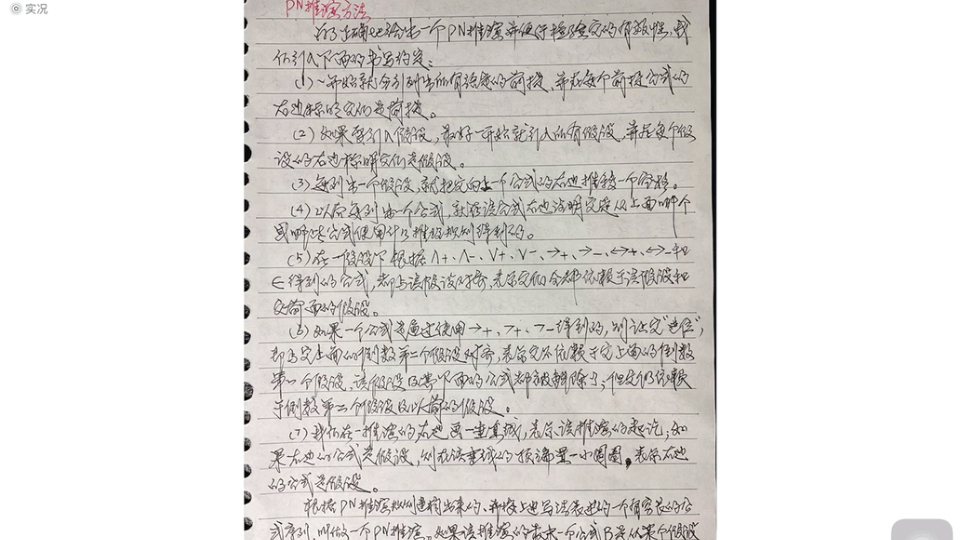 实况
PN推演方法
为了正确地给出一个PN推演并使行检验它的有效性,我
们引入下面的书写约定:
(1)一开始就全列出所有该题的前提,并在每个前提公式的
右边标明它们是前提。
(2)如果要引入假设,最好一开始就引入所有假设,并在每个假
设的右边标明它们是假设。
(3)每列出一个假设,就把它向上一个公式的右边推移一个空格。
(4)以后每列出一个公式,就在该公式右边注明它是从上面哪个
或哪些公式使用什么推演规则得到的。
(5)在一假设下根据∧+、∧-、∨+、∨-、→+、→-、↔+、↔-和
∈得到的公式,都与该假设对齐,表示它们全都依赖于该假设和
它前面的假设。
(6)如果一个公式是通过使用→+、¬+、¬-得到的,则让它“退位”,
即与它上面的倒数第二个假设对齐,表示它不依赖于它上面的倒数
第一个假设,该假设及其下面的公式都被解除了;但它们依赖
于倒数第二个假设及以前的假设。
(7)我们在一推演的左边画一垂直线,表示该推演的起讫;如
果右边的公式是假设,则在该垂线的顶端置一小圆圈,表示右边
的公式是假设。
根据PN推演规则建构出来的、并按上述写法表述的一个有穷长的公
式序列,叫做一个PN推演。如果该推演的最末一个公式B是从某个假设